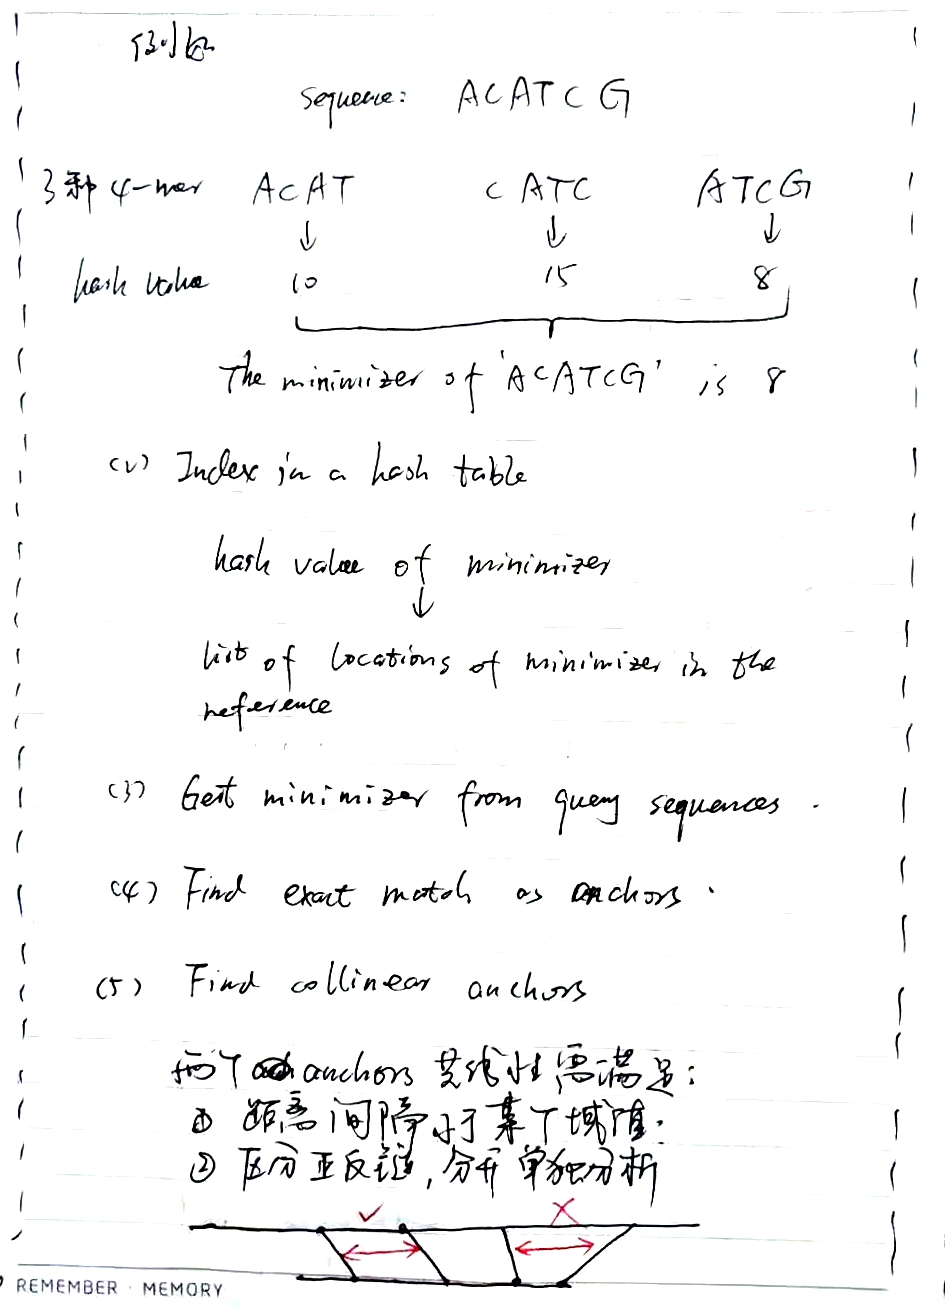 例如
sequence: ACATCG
3种 4-mer ACAT CATC ATCG
↓ ↓ ↓
hash value 10 15 8
The minimizer of 'ACATCG' is 8
(2) Index in a hash table
hash value of minimizer
↓
list of locations of minimizer in the
reference
(3) Get minimizer from query sequences.
(4) Find exact match as anchors.
(5) Find collinear anchors
两个 anchors 共线性需满足:
① 距离间隔小于某个域值.
② 区分正反链, 分开单独分析
✓ X
REMEMBER · MEMORY